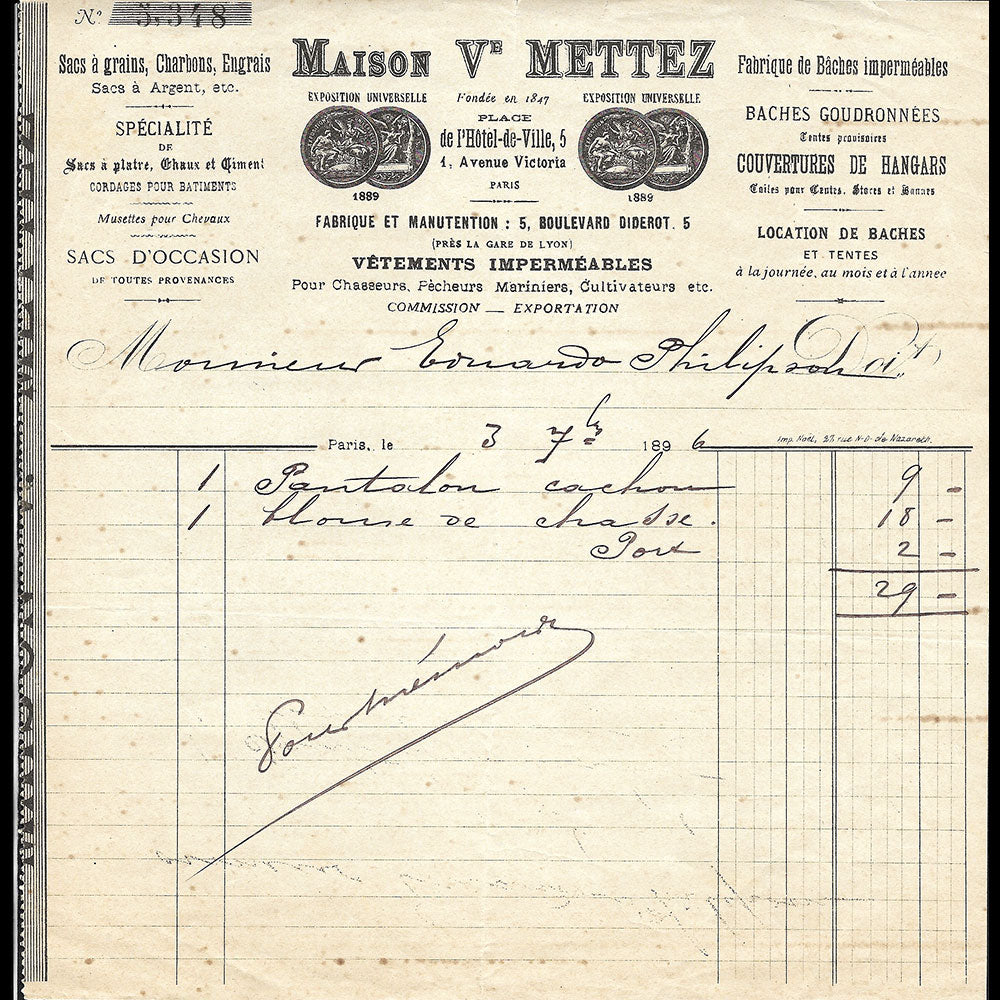 N° 5,348
MAISON VE METTEZ
Sacs à grains, Charbons, Engrais
Sacs à Argent, etc.
SPÉCIALITÉ
DE
Sacs à platre, Chaux et Ciment
CORDAGES POUR BATIMENTS
Musettes pour Chevaux
SACS D'OCCASION
DE TOUTES PROVENANCES
EXPOSITION UNIVERSELLE
1889
Fondée en 1847
PLACE
de l'Hôtel-de-Ville, 5
1, Avenue Victoria
PARIS
EXPOSITION UNIVERSELLE
1889
FABRIQUE ET MANUTENTION : 5, BOULEVARD DIDEROT. 5
(PRÈS LA GARE DE LYON)
VÊTEMENTS IMPERMÉABLES
Pour Chasseurs, Pêcheurs Mariniers, Cultivateurs etc.
COMMISSION — EXPORTATION
Fabrique de Bâches imperméables
BACHES GOUDRONNÉES
Tentes provisoires
COUVERTURES DE HANGARS
Toiles pour Tentes, Stores et Bannes
LOCATION DE BACHES
ET TENTES
à la journée, au mois et à l'année
Monsieur Eduardo Philipson Doit
Paris, le 3 7bre 1896
Imp. Noël, 27, rue N-D- de Nazareth.
1 Pantalon cachou 9 -
1 blouse de chasse. 18 -
Port 2 -
29 -
Pour mémoire